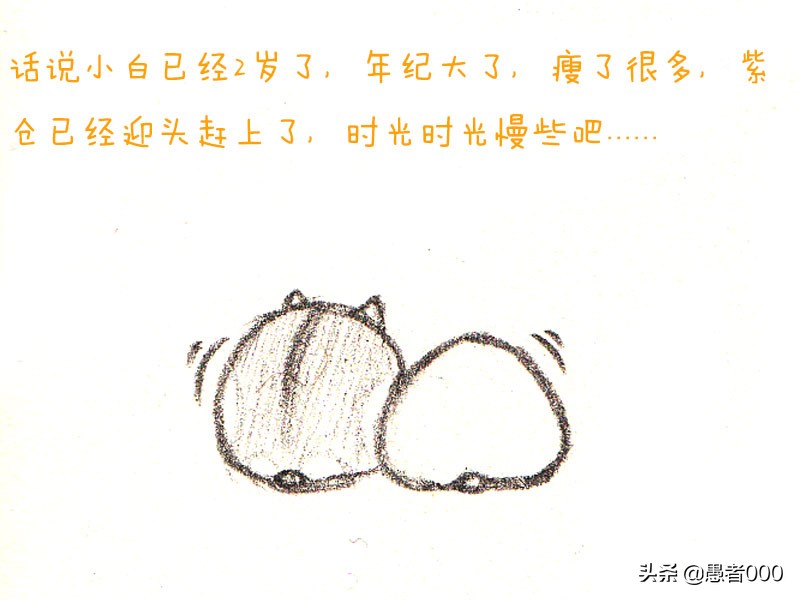 话说小白已经2岁了，年纪大了，瘦了很多，紫
仓已经迎头赶上了，时光时光慢些吧……
头条 @愚者000